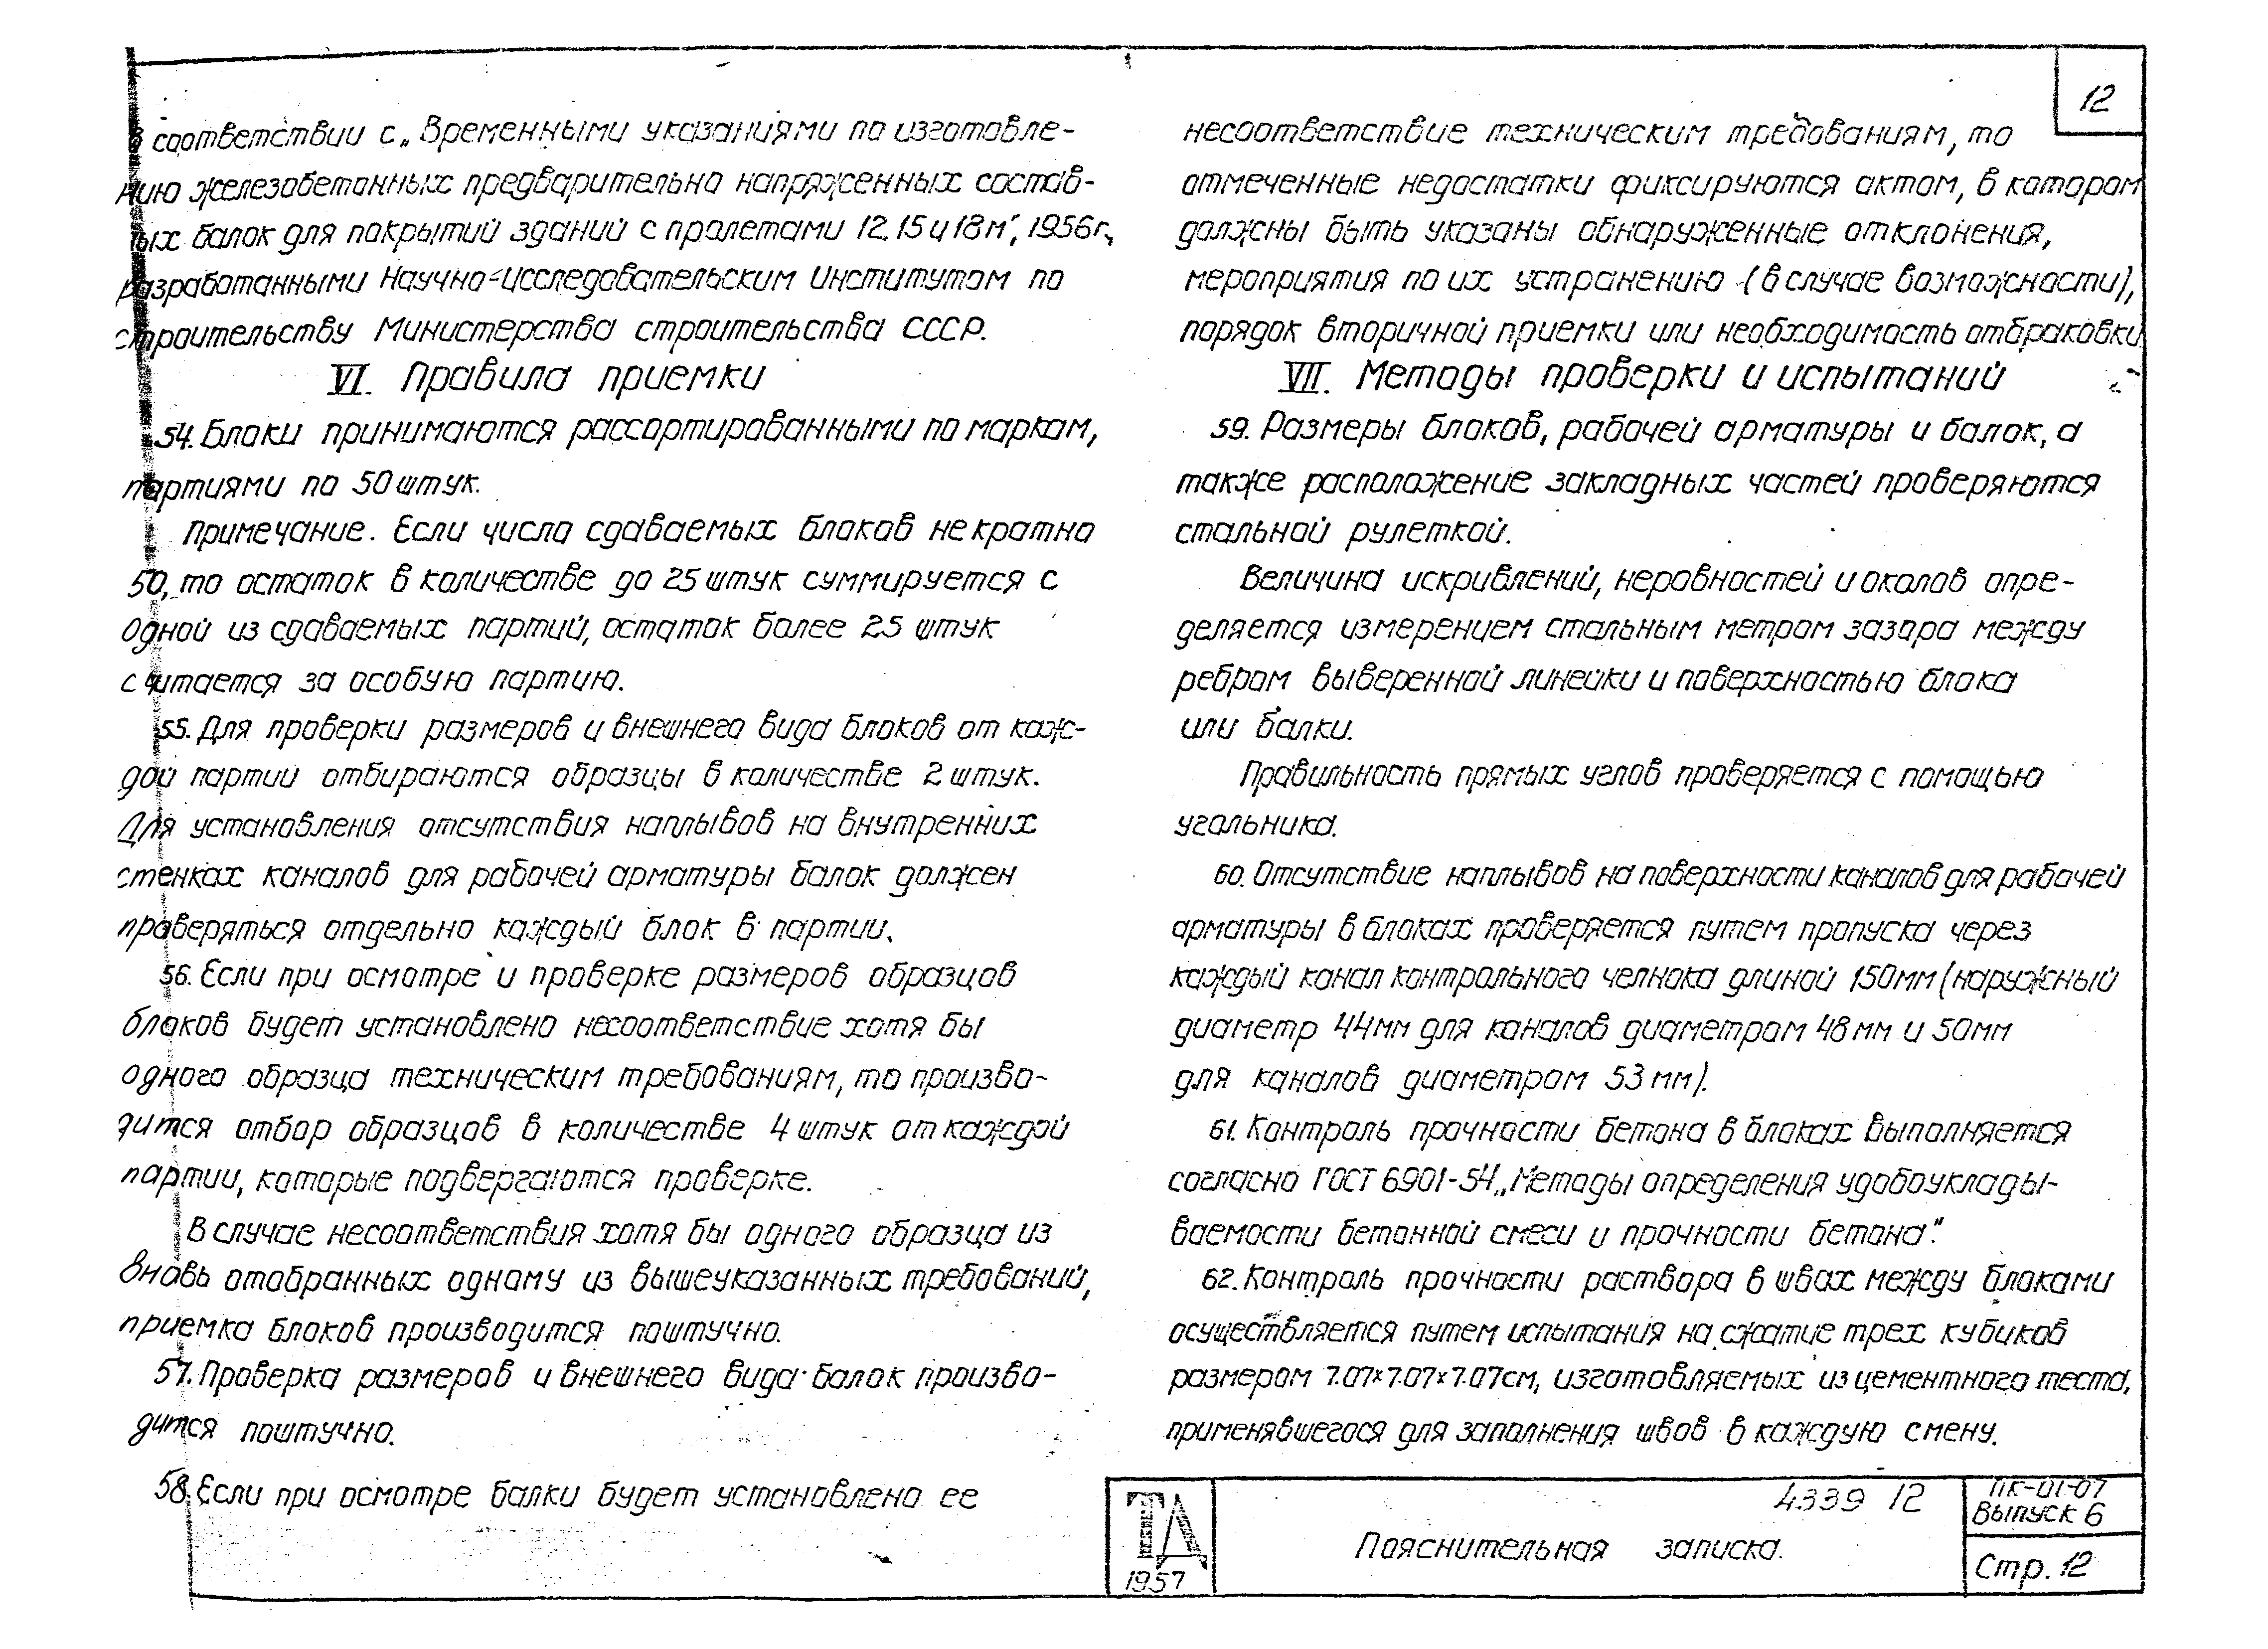 12
в соответствии с „Временными указаниями по изготовле-
нию железобетонных предварительно напряженных состав-
ных балок для покрытий зданий с пролетами 12, 15 и 18 м", 1956 г.,
разработанными Научно-исследовательским Институтом по
строительству Министерства строительства СССР.
VI. Правила приемки
54. Блоки принимаются рассортированными по маркам,
партиями по 50 штук.
Примечание. Если число сдаваемых блоков не кратно
50, то остаток в количестве до 25 штук суммируется с
одной из сдаваемых партий, остаток более 25 штук
считается за особую партию.
55. Для проверки размеров и внешнего вида блоков от каж-
дой партии отбираются образцы в количестве 2 штук.
Для установления отсутствия наплывов на внутренних
стенках каналов для рабочей арматуры балок должен
проверяться отдельно каждый блок в партии.
56. Если при осмотре и проверке размеров образцов
блоков будет установлено несоответствие хотя бы
одного образца техническим требованиям, то произво-
дится отбор образцов в количестве 4 штук от каждой
партии, которые подвергаются проверке.
В случае несоответствия хотя бы одного образца из
вновь отобранных одному из вышеуказанных требований,
приемка блоков производится поштучно.
57. Проверка размеров и внешнего вида балок произво-
дится поштучно.
58. Если при осмотре балки будет установлено ее
несоответствие техническим требованиям, то
отмеченные недостатки фиксируются актом, в котором
должны быть указаны обнаруженные отклонения,
мероприятия по их устранению (в случае возможности),
порядок вторичной приемки или необходимость отбраковки.
VII. Методы проверки и испытаний
59. Размеры блоков, рабочей арматуры и балок, а
также расположение закладных частей проверяются
стальной рулеткой.
Величина искривлений, неровностей и околов опре-
деляется измерением стальным метром зазора между
ребром выверенной линейки и поверхностью блока
или балки.
Правильность прямых углов проверяется с помощью
угольника.
60. Отсутствие наплывов на поверхности каналов для рабочей
арматуры в блоках проверяется путем пропуска через
каждый канал контрольного челнока длиной 150мм (наружный
диаметр 44мм для каналов диаметром 48 мм и 50мм
для каналов диаметром 53 мм).
61. Контроль прочности бетона в блоках выполняется
согласно ГОСТ 6901-54 „Методы определения удобоуклады-
ваемости бетонной смеси и прочности бетона".
62. Контроль прочности раствора в швах между блоками
осуществляется путем испытания на сжатие трех кубиков
размером 7.07×7.07×7.07см, изготовляемых из цементного теста,
применявшегося для заполнения швов в каждую смену.
ТД
1957
4339 12
Пояснительная записка.
ПК-01-07
Выпуск 6
Стр. 12